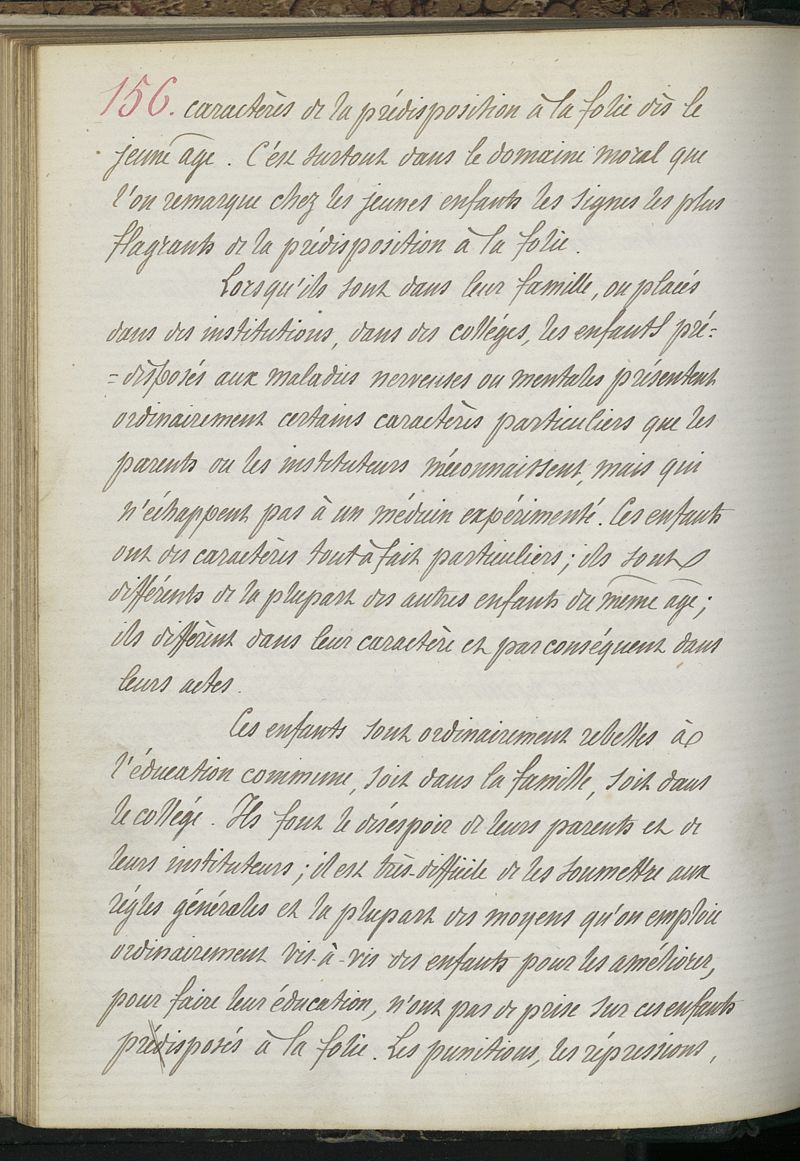 156. caractères de la prédisposition à la folie dès le
jeune âge. C'est surtout dans le domaine moral que
l'on remarque chez les jeunes enfants les signes les plus
flagrants de la prédisposition à la folie.
Lorsqu'ils sont dans leur famille, ou placés
dans des institutions, dans des collèges, les enfants pré=
=disposés aux maladies nerveuses ou mentales présentent
ordinairement certains caractères particuliers que les
parents ou les instituteurs méconnaissent, mais qui
n'échappent pas à un médecin expérimenté. Ces enfants
ont des caractères tout à fait particuliers; ils sont
différents de la plupart des autres enfants du même âge;
ils diffèrent dans leur caractère et par conséquent dans
leurs actes.
Ces enfants sont ordinairement rebelles à
l'éducation commune, soit dans la famille, soit dans
le collège. Ils font le désespoir de leurs parents et de
leurs instituteurs; il est très-difficile de les soumettre aux
règles générales et la plupart des moyens qu'on emploie
ordinairement vis-à-vis des enfants pour les améliorer,
pour faire leur éducation, n'ont pas de prise sur ces enfants
prédisposés à la folie. Les punitions, les répressions,